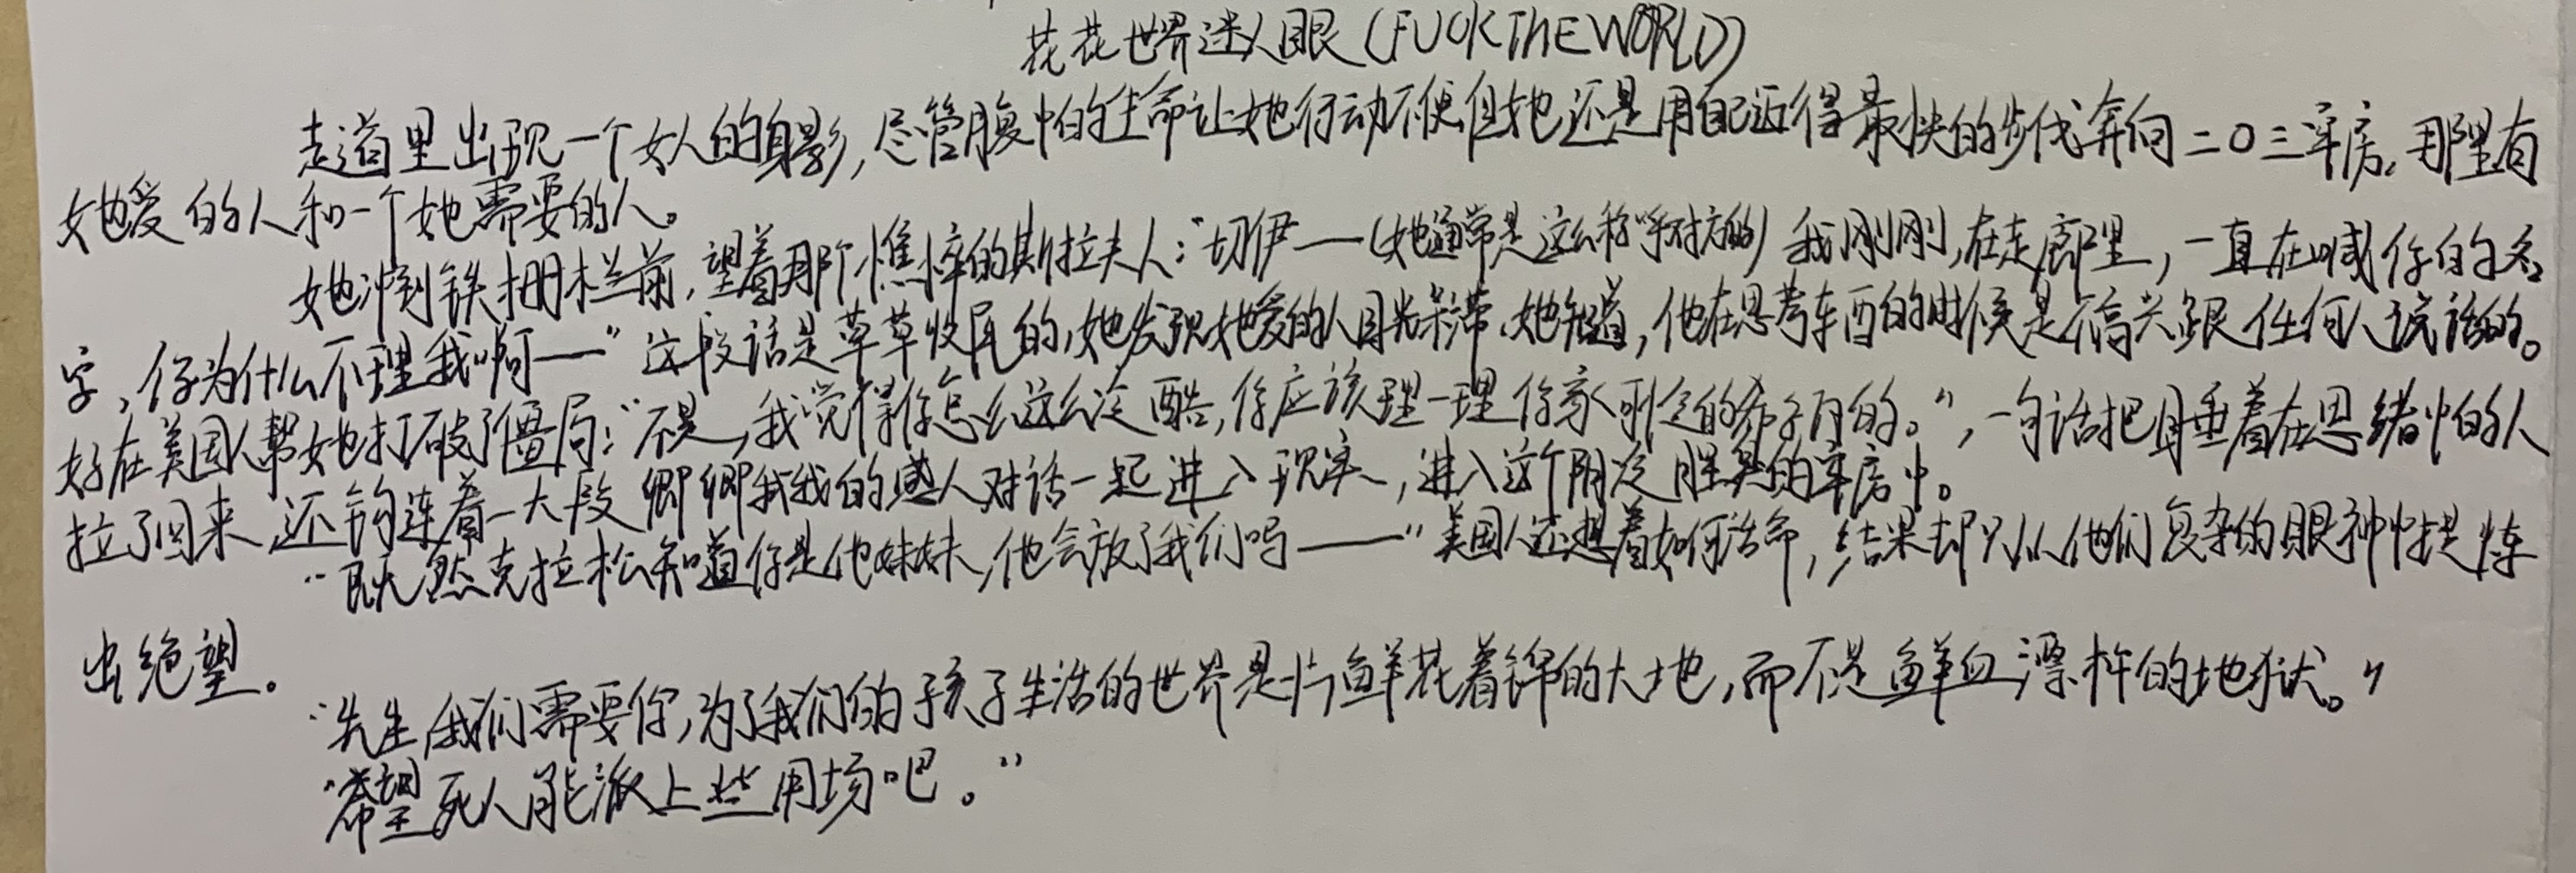 花花世界迷人眼(FUCK THE WORLD)
走道里出现一个女人的身影,尽管腹中的生命让她行动不便但她还是用自己迈得最快的步伐奔向二〇三牢房,那里有
她爱的人和一个她需要的人。
她冲到铁栅栏前,望着那个憔悴的斯拉夫人:“切伊——(她通常是这么称呼对方的)我刚刚,在走廊里,一直在喊你的名
字,你为什么不理我啊——”这段话是草草收尾的,她发现她爱的人目光呆滞,她知道,他在思考东西的时候是不高兴跟任何人说话的。
好在美国人帮她打破了僵局:“不是,我觉得你怎么这么冷酷,你应该理一理你家的。”,一句话把睡着在思绪中的人
拉了回来,还钩连着一大段卿卿我我的感人对话一起进入现实,进入这个阴冷腥臭的牢房中。
“既然克拉松知道你是他妹妹,他会放了我们吗——”美国人还想着如何活命,结果却只从他们复杂的眼神中提炼
出绝望。
“先生,我们需要你,为了我们的孩子生活的世界是片鲜花着锦的大地,而不是鲜血漂杵的地狱。”
“希望死人能派上些用场吧。”